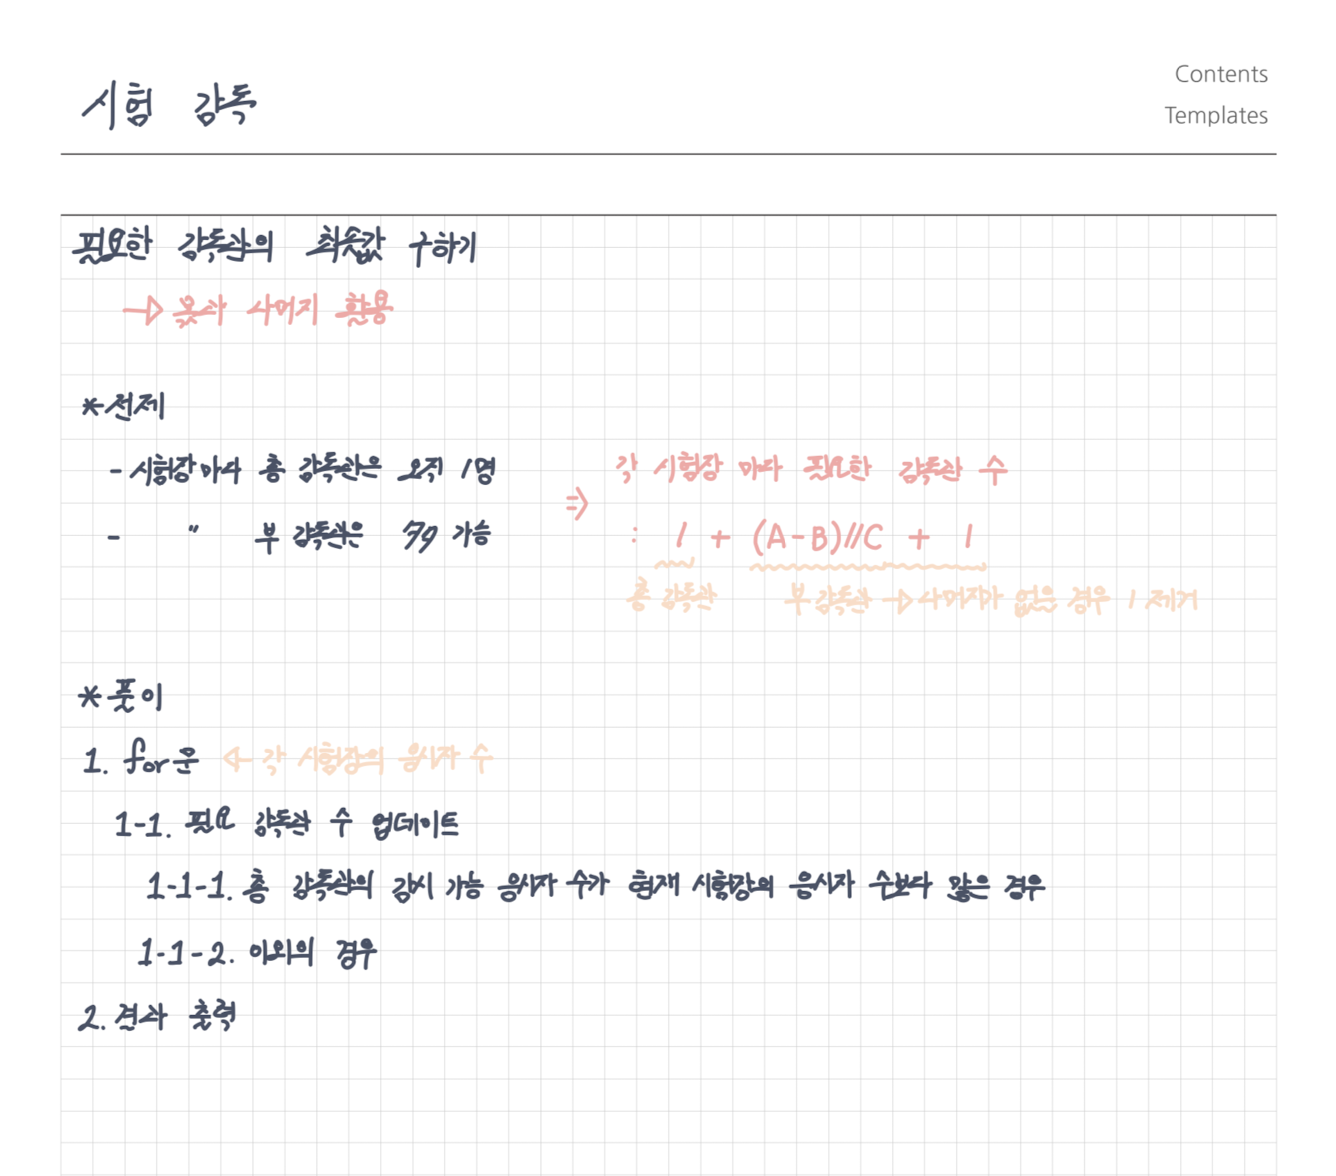 시험 감독
Contents
Templates
필요한 감독관의 최솟값 구하기
→ 몫과 나머지 활용
*전제
- 시험장마다 총 감독관은 오직 1명
- " 부 감독관은 여러 가능
⇒ 각 시험장 마다 필요한 감독관 수
: 1 + (A-B)//C + 1
총 감독관 부감독관 → 나머지가 없은 경우 1 제거
*풀이
1. for문 ← 각 시험장의 응시자 수
1-1. 필요 감독관 수 업데이트
1-1-1. 총 감독관의 감시 가능 응시자 수가 현재 시험장의 응시자 수보다 많은 경우
1-1-2. 이외의 경우
2. 결과 출력